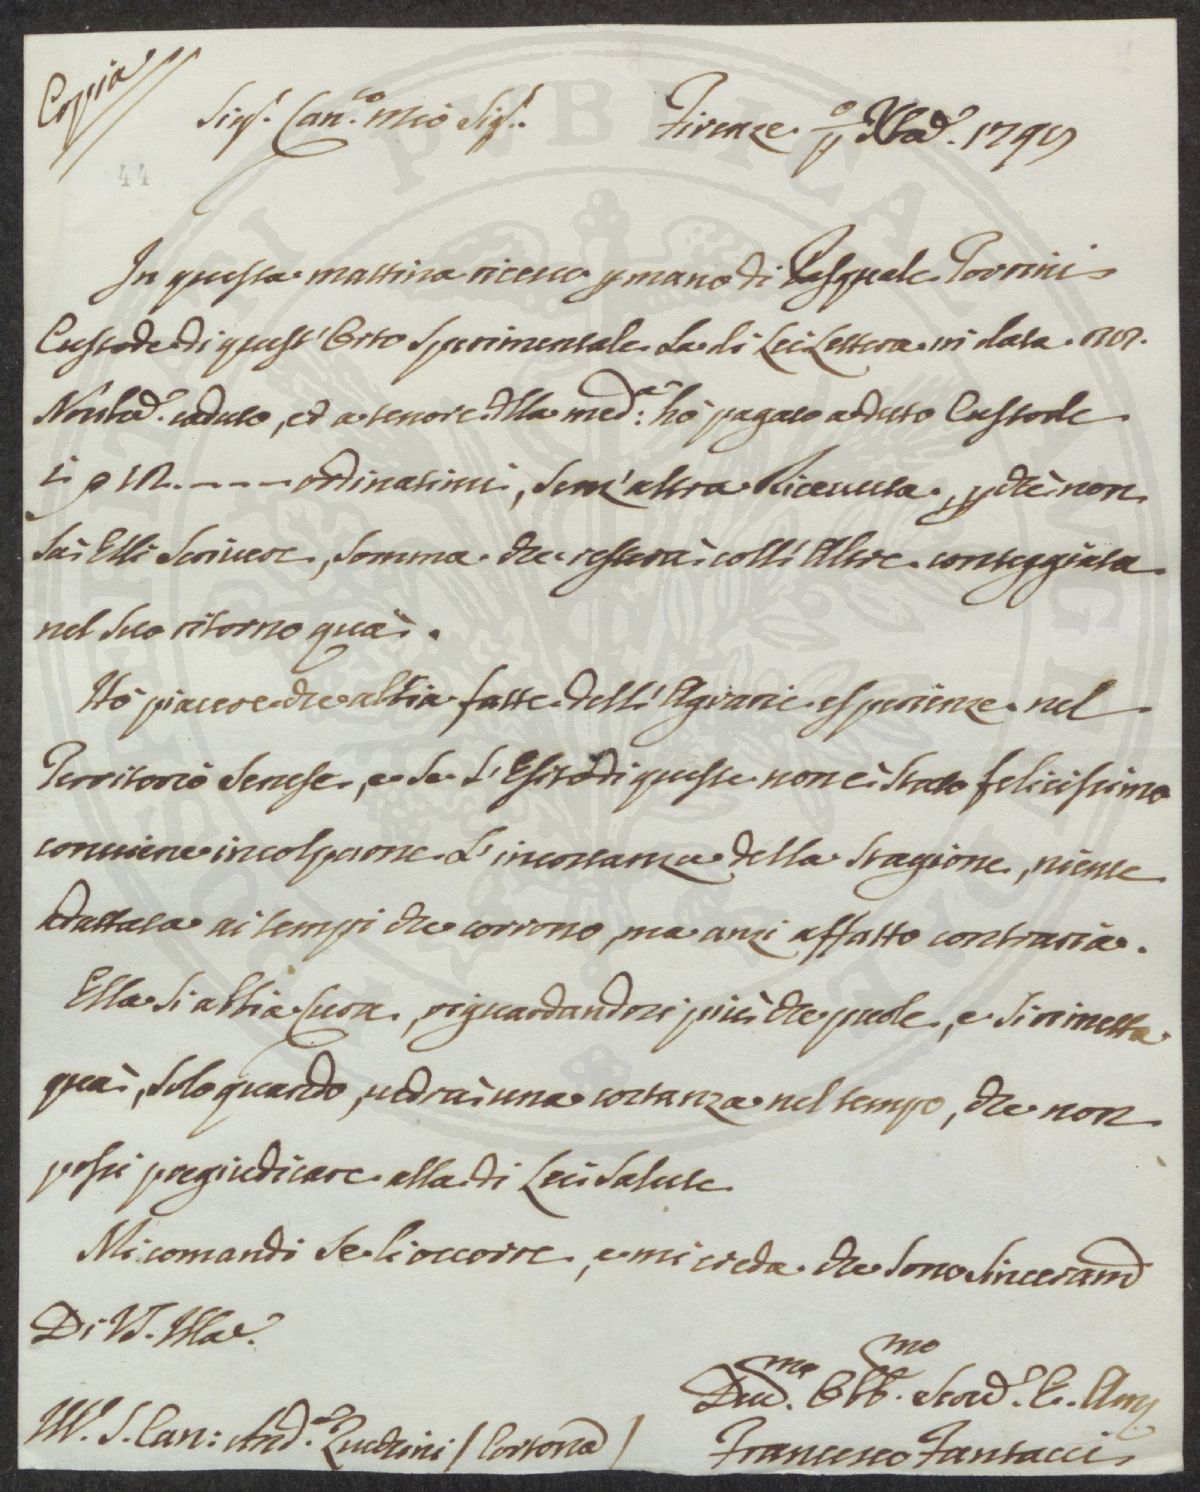 Copia
Sig.r Can.co Mio Sig.r Firenze p.o Xbre. 1795
44
In questa mattina ricevo p mano di Pasquale Torrini
Custode di quest'Orto Sperimentale la di Lei Lettera in data
Novbre. caduto, ed a tenore della med.a hò pagato a detto Custode
ordinatimi, senz'altra Ricevuta, p che non
sà Elli Scrivere, somma che resterà coll'Altre conteggiata
nel suo ritorno quà.
Hò piacere che abbia fatte dell'Agrarie esperienze nel
Territorio Senese, e se l'Esito di queste non è stato felicissimo
conviene incolparne l'incostanza della stagione, niente
adattata ai tempi che corrono, ma anzi affatto contraria.
Ella si abbia Cura, riguardandosi più che puole, e si rimetta
quà, solo quando, vedrà una costanza nel tempo, che non
possi pregiudicare alla di Lei Salute
Mi comandi se li occorre, e mi creda che sono sinceram.
Di VS. Illa.
Dev.mo Obb.mo Serv.e
Ill. S. Can: And.a Zucchini / Cortona / Francesco Fantacci
PUBLICAE